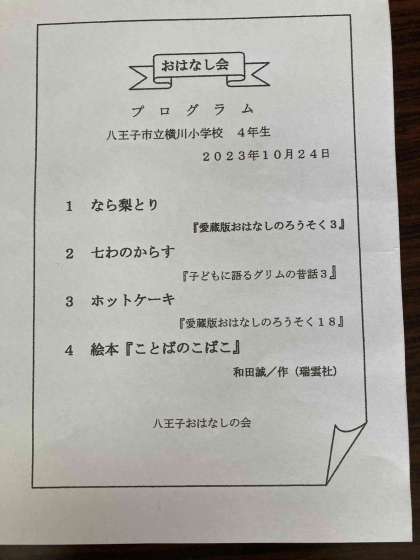 おはなし会
プログラム
八王子市立横川小学校　４年生
２０２３年１０月２４日
１　なら梨とり
『愛蔵版おはなしのろうそく３』
２　七わのからす
『子どもに語るグリムの昔話３』
３　ホットケーキ
『愛蔵版おはなしのろうそく１８』
４　絵本『ことばのこばこ』
和田誠／作（瑞雲社）
八王子おはなしの会